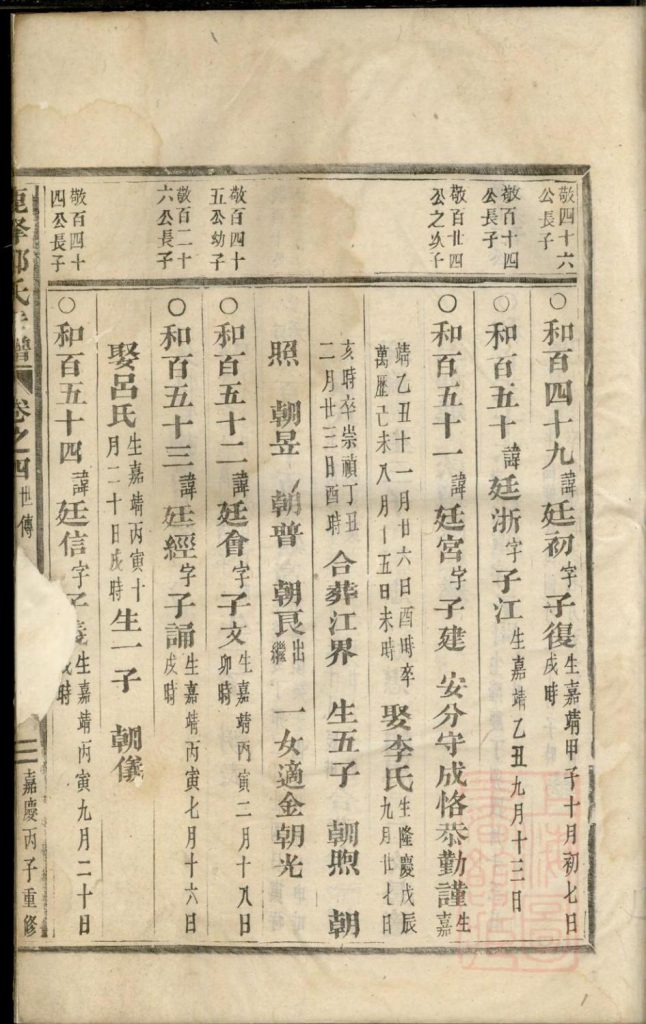 敬四十六
公長子
敬百十四
公長子
敬百廿四
公之次子
敬百四十
五公幼子
敬百二十
六公長子
敬百四十
四公長子
○和百四十九諱廷初字子復生嘉靖甲子十月初七日戌時
○和百五十諱廷浙字子江生嘉靖乙丑九月十三日
○和百五十一諱廷宮字子建 安分守成恪恭勤謹生嘉
靖乙丑十一月廿六日酉時卒萬歷己未八月十五日未時 娶李氏生隆慶戊辰九月廿七日
亥時卒崇禎丁丑二月廿三日酉時 合葬江界 生五子 朝煦 朝
照 朝昱 朝普 朝良出繼 一女適金朝光
○和百五十二諱廷會字子文生嘉靖丙寅二月十八日卯時
○和百五十三諱廷經字子誦生嘉靖丙寅七月十六日戌時
娶呂氏生嘉靖丙寅十月二十日戌時生一子 朝儀
○和百五十四諱廷信字子 生嘉靖丙寅九月二十日 時
峯 氏 譜 卷之四 世傳 三 嘉慶丙子重修